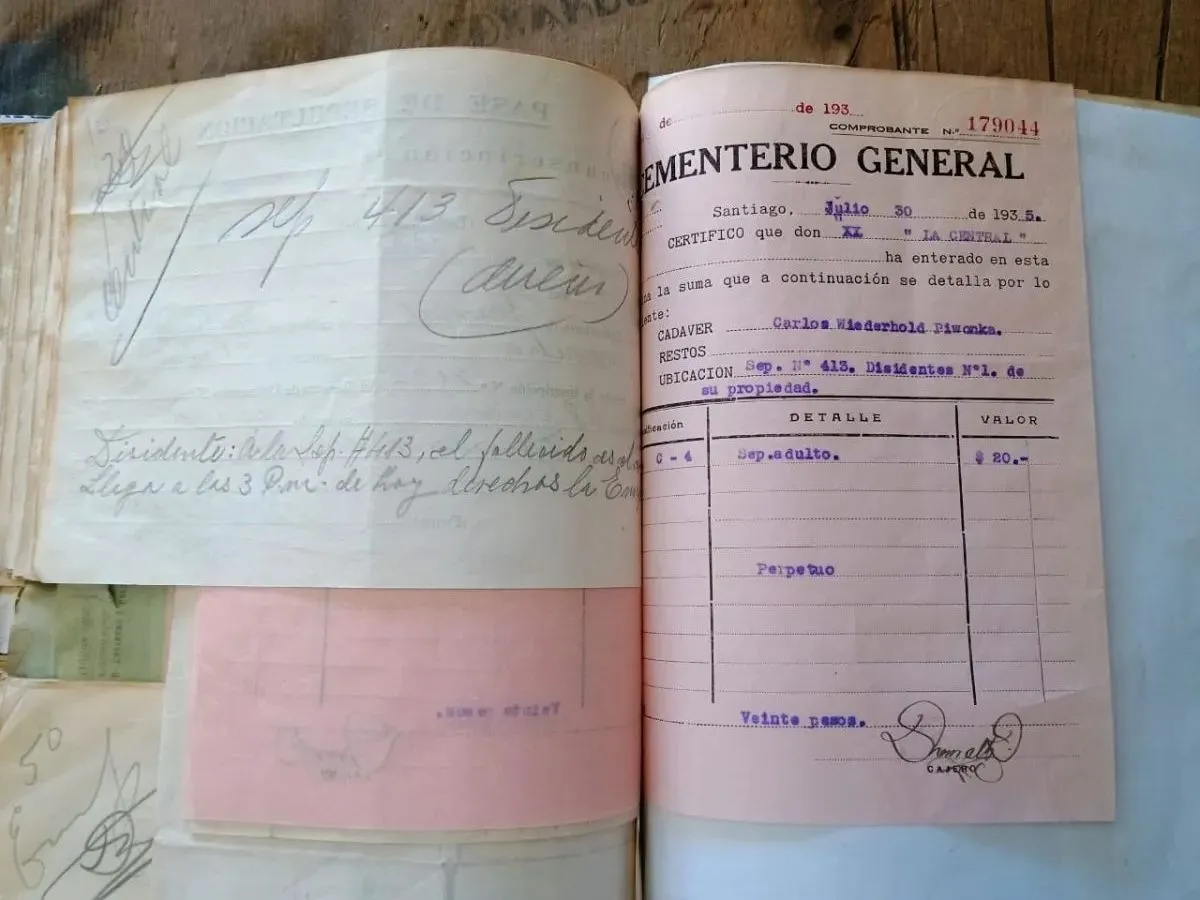 sep 413 Disiden
Disidente: A la Sep. #413, el fallecido es el
Llega a las 3 P.m. de hoy derechos la Em
PASE DE SEPULTACION
Veinte pesos.
50
de de 193
COMPROBANTE N.º 179044
CEMENTERIO GENERAL
Santiago, Julio 30 de 1935.
CERTIFICO que don XI " LA CENTRAL "
ha enterado en esta
la suma que a continuación se detalla por lo
ente:
CADAVER Carlos Wiederhold Piwonka.
RESTOS
UBICACION Sep. Nº 413. Disidentes Nº1. de
su propiedad.
ificación DETALLE VALOR
C - 4 Sep.adulto. $ 20.-
Perpetuo
Veinte pesos.
CAJERO